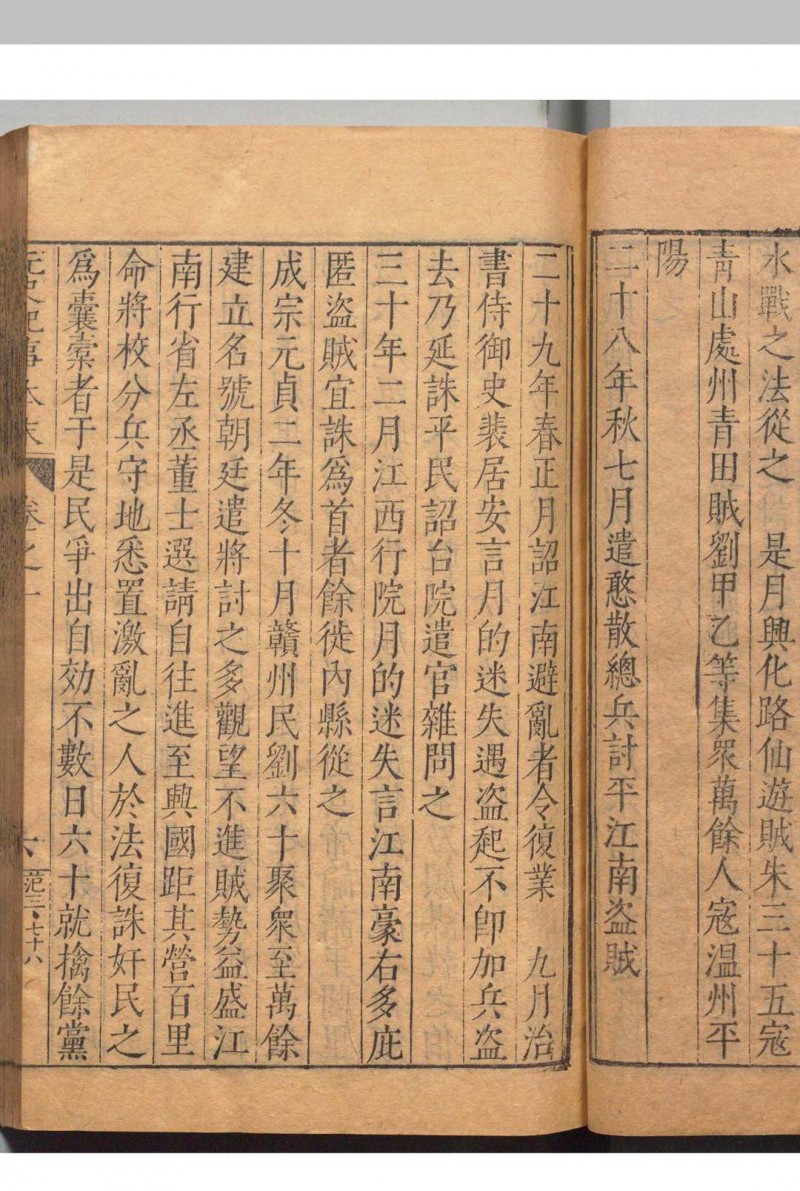 水戰之法從之　是月興化路仙遊賊朱三十五寇
青山處州青田賊劉甲乙等集眾萬餘人寇温州平
陽
二十八年秋七月遣憨散總兵討平江南盗賊
二十九年春正月詔江南避亂者令復業　九月治
書侍御史裴居安言月的迷失遇盗起不即加兵盗
去乃延誅平民詔台院遣官雜問之
三十年二月江西行院月的迷失言江南豪右多庇
匿盗賊宜誅爲首者餘徙內縣從之
成宗元貞二年冬十月贛州民劉六十聚衆至萬餘
建立名號朝廷遣將討之多觀望不進賊勢益盛江
南行省左丞董士選請自往進至興國距其營百里
命將校分兵守地悉置激亂之人於法復誅奸民之
爲囊橐者于是民爭出自効不數日六十就擒餘黨
元史紀事本末　卷之一　六　范三、七十八